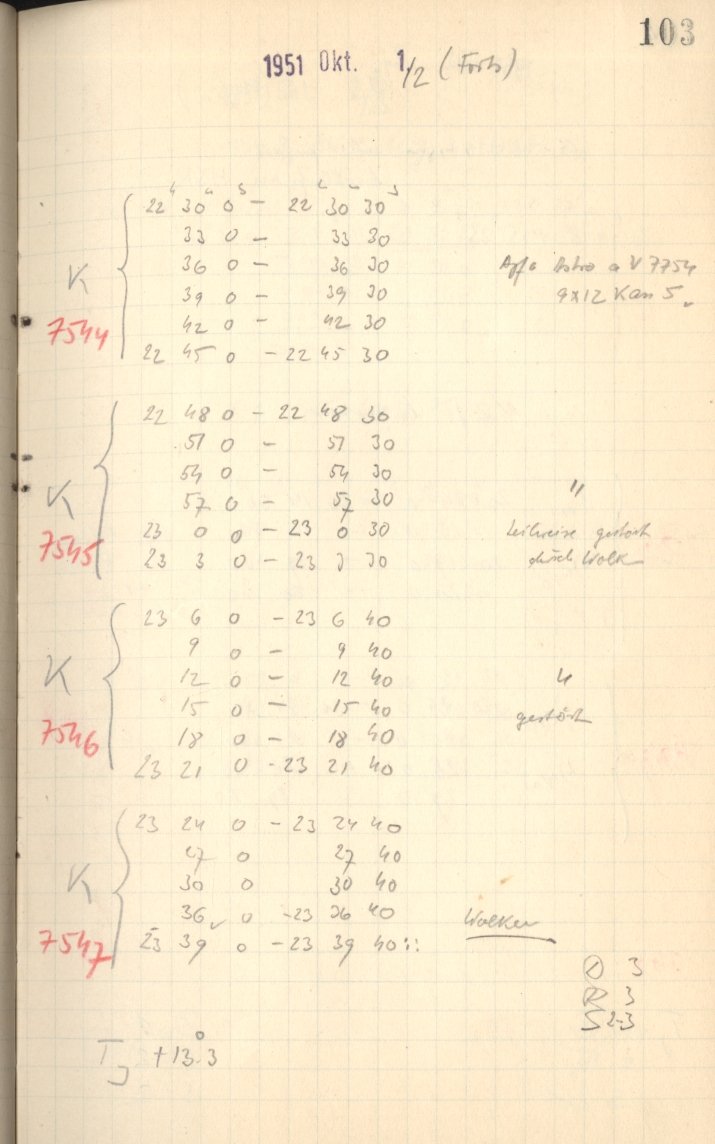 103
1951 Okt. 1/2 (Forts)
h m s h m s
22 30 0 - 22 30 30
33 0 - 33 30
K 36 0 - 36 30 Agfa Astro a V 7754
39 0 - 39 30 9x12 Kas 5
7544 42 0 - 42 30
22 45 0 - 22 45 30
22 48 0 - 22 48 30
51 0 - 51 30
54 0 - 54 30
K 57 0 - 57 30 "
7545 23 0 0 - 23 0 30 teilweise gestört
23 3 0 - 23 3 30 durch Wolk
23 6 0 - 23 6 40
9 0 - 9 40
K 12 0 - 12 40 "
7546 15 0 - 15 40 gestört
18 0 - 18 40
23 21 0 - 23 21 40
23 24 0 - 23 24 40
27 0 27 40
K 30 0 30 40
36 0 - 23 36 40 Wolken
7547 23 39 0 - 23 39 40::
D 3
R 3
S 2-3
TJ +13°.3